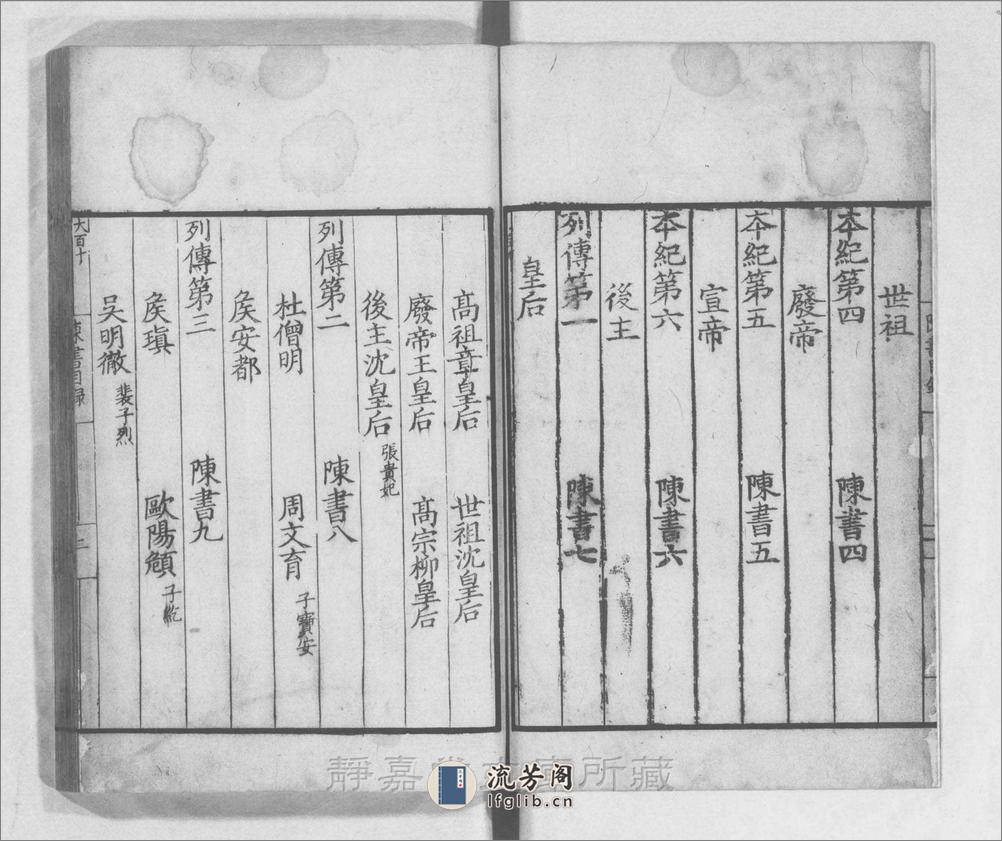 世祖
本紀第四 陳書四
廢帝
本紀第五 陳書五
宣帝
本紀第六 陳書六
後主
列傳第一 陳書七
皇后
高祖章皇后 世祖沈皇后
廢帝王皇后 高宗柳皇后
後主沈皇后 張貴妃
列傳第二 陳書八
杜僧明 周文育 子寶安
侯安都
列傳第三 陳書九
侯瑱 歐陽頠 子紇
吳明徹 裴子烈
大百十 陳書目録 二
靜嘉堂文庫所藏
流芳阁
lfglib.cn